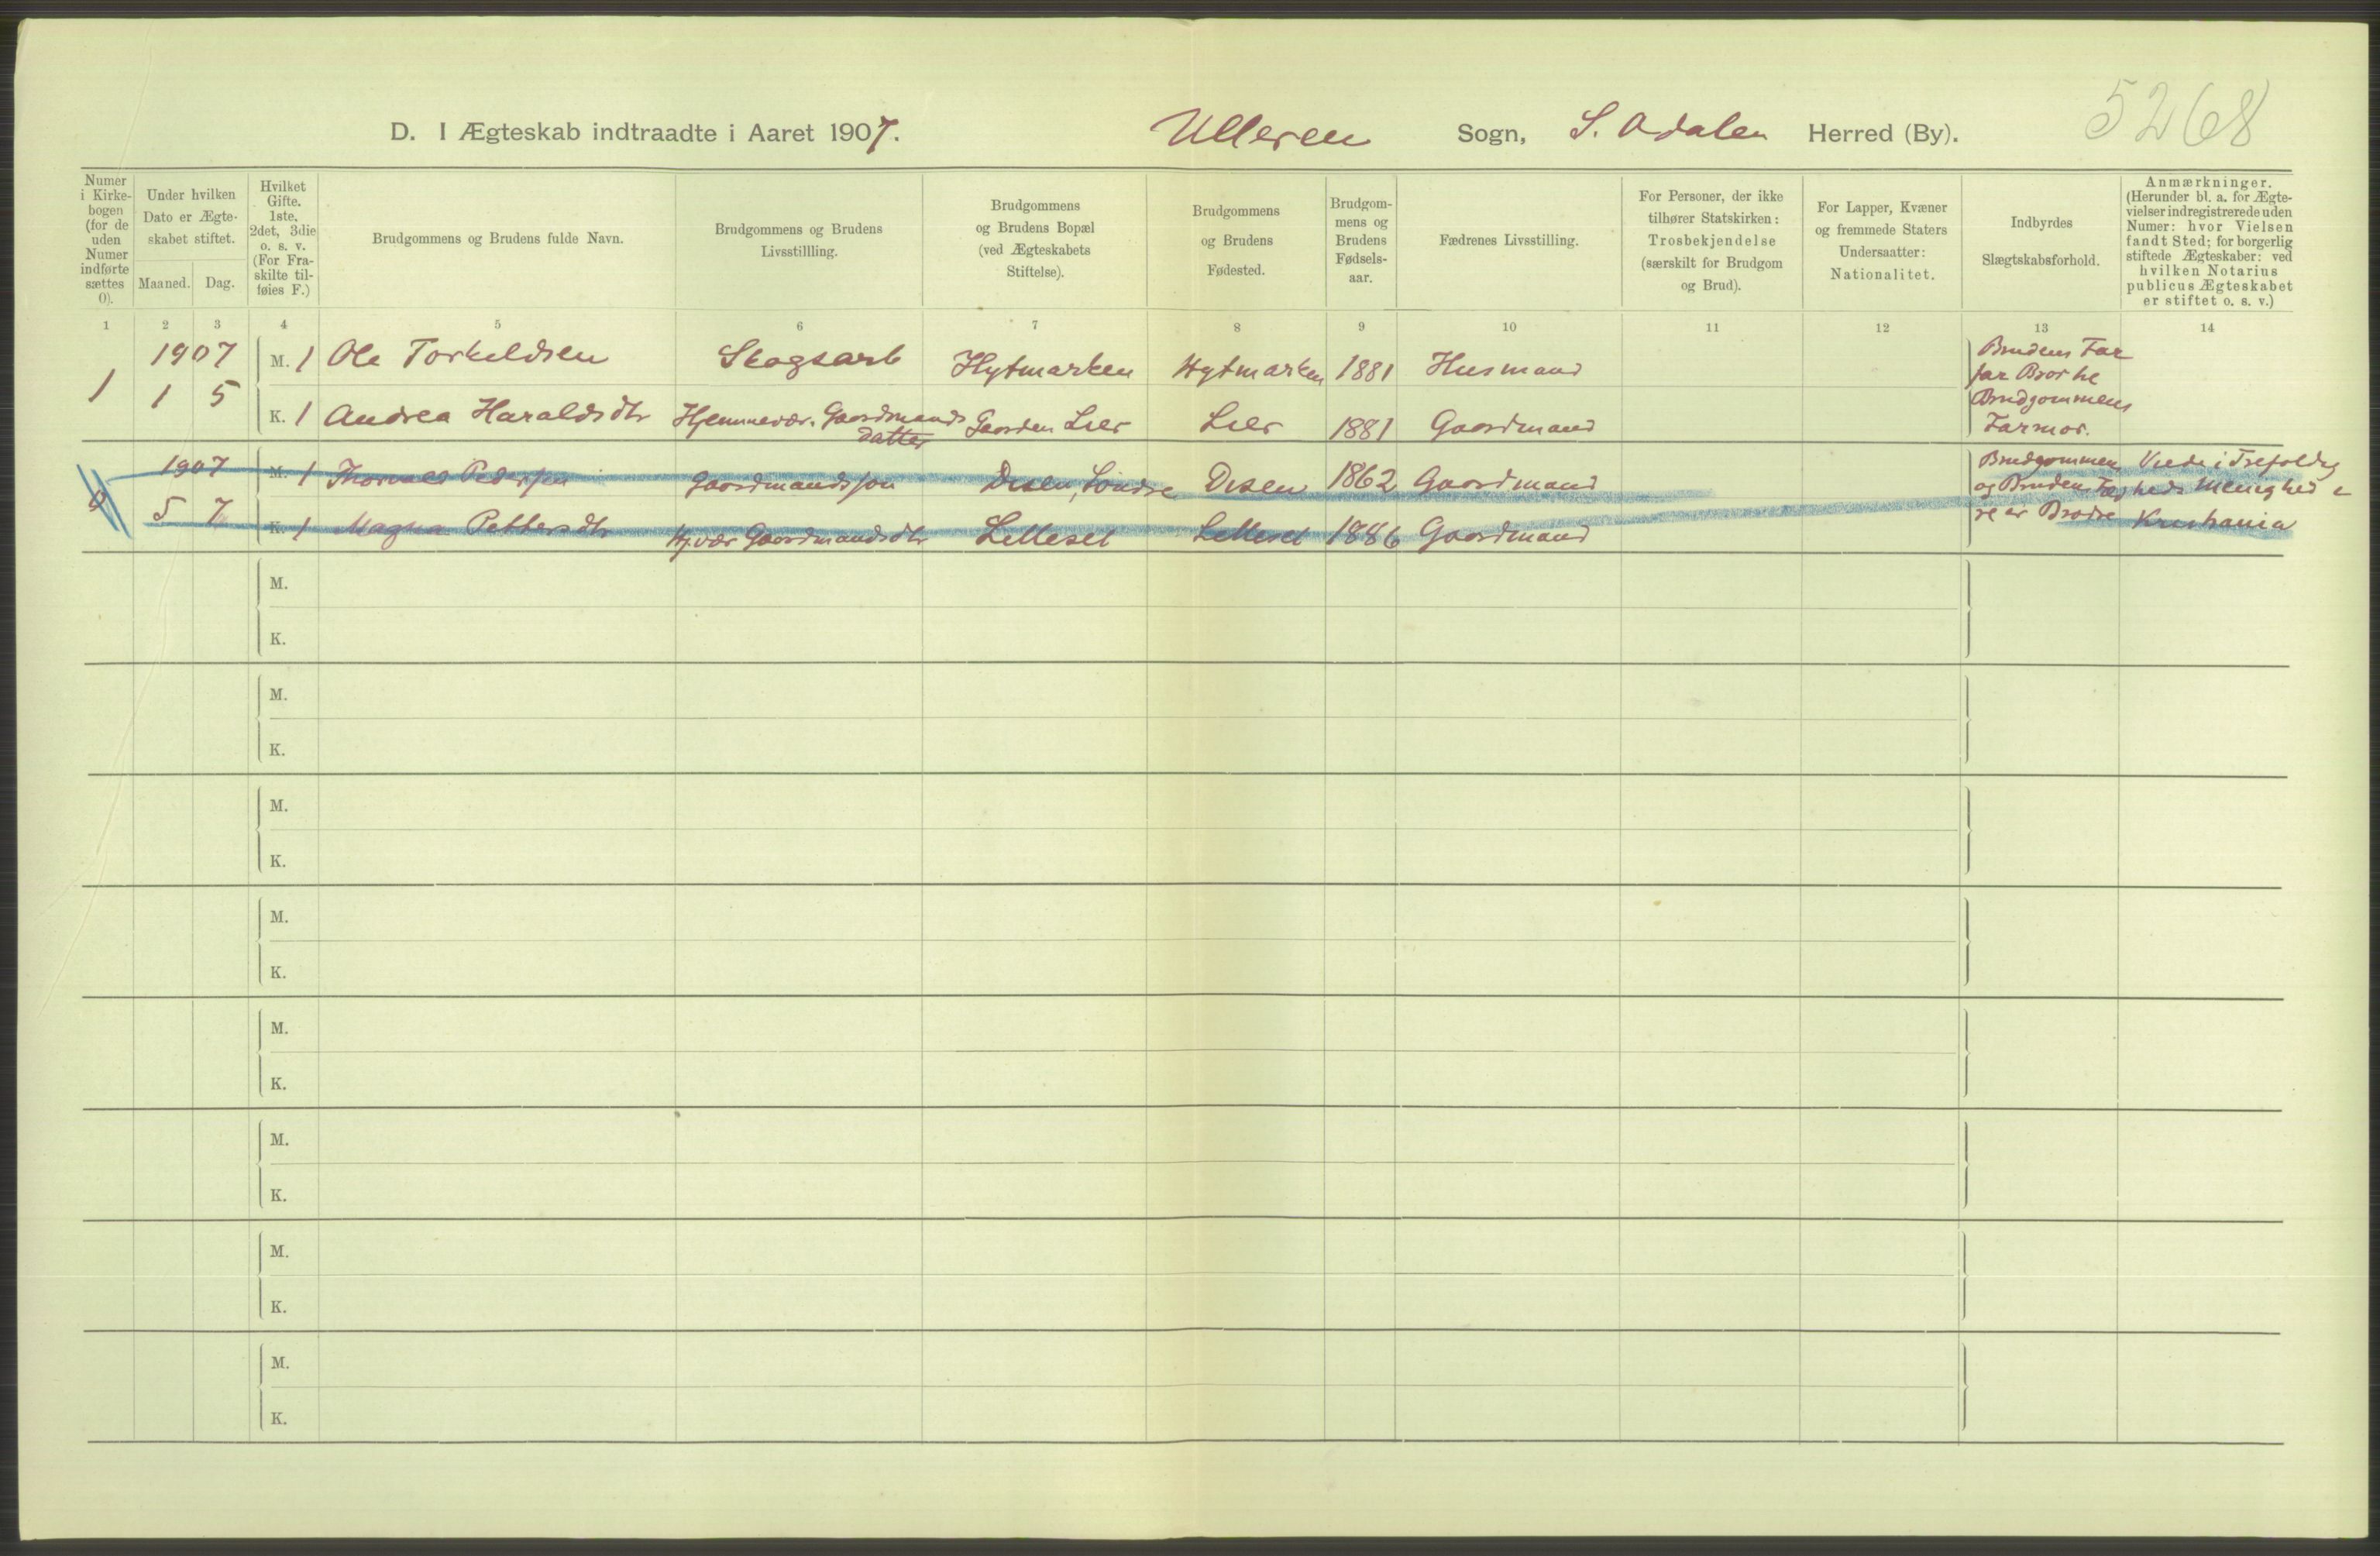 D. I Ægteskab indtraadte i Aaret 1907. Ulleren Sogn, S. Odalen Herred (By). 5268
Numer i Kirkebogen (for de uden Numer indførte sættes 0).
Under hvilken Dato er Ægteskabet stiftet.
Maaned. Dag.
Hvilket Gifte. 1ste, 2det, 3die o. s. v. (For Fraskilte tilføies F.)
Brudgommens og Brudens fulde Navn.
Brudgommens og Brudens Livsstillling.
Brudgommens og Brudens Bopæl (ved Ægteskabets Stiftelse).
Brudgommens og Brudens Fødested.
Brudgommens og Brudens Fødselsaar.
Fædrenes Livsstilling.
For Personer, der ikke tilhører Statskirken: Trosbekjendelse (særskilt for Brudgom og Brud).
For Lapper, Kvæner og fremmede Staters Undersaatter: Nationalitet.
Indbyrdes Slægtskabsforhold.
Anmærkninger. (Herunder bl. a. for Ægtevielser indregistrerede uden Numer: hvor Vielsen fandt Sted; for borgerlig stiftede Ægteskaber: ved hvilken Notarius publicus Ægteskabet er stiftet o. s. v.)
1 2 3 4 5 6 7 8 9 10 11 12 13 14
1907 M. 1 Ole Torkeldsen Skogsarb Hytmarken Hytmarken 1881 Husmand Brudens Far
far Bror til
1 1 5 K. 1 Andrea Haraldsdtr Hjemmevær. Gaardmands datter Gaarden Lier Lier 1881 Gaardmand Brudgommens
Farmor.
1907 M. 1 Thorvald Pedersen Gaardmandssøn Disen, Søndre Disen 1862 Gaardmand Brudgommen Viede i Trefoldig
og Brudens Fæd heds Menighed i
0 5 7 K. 1 Magna Pettersdtr Hj.vær Gaardmandsdtr Lilleset Lilleset 1886 Gaardmand re er Brødre Kristiania
M.
K.
M.
K.
M.
K.
M.
K.
M.
K.
M.
K.
M.
K.
M.
K.